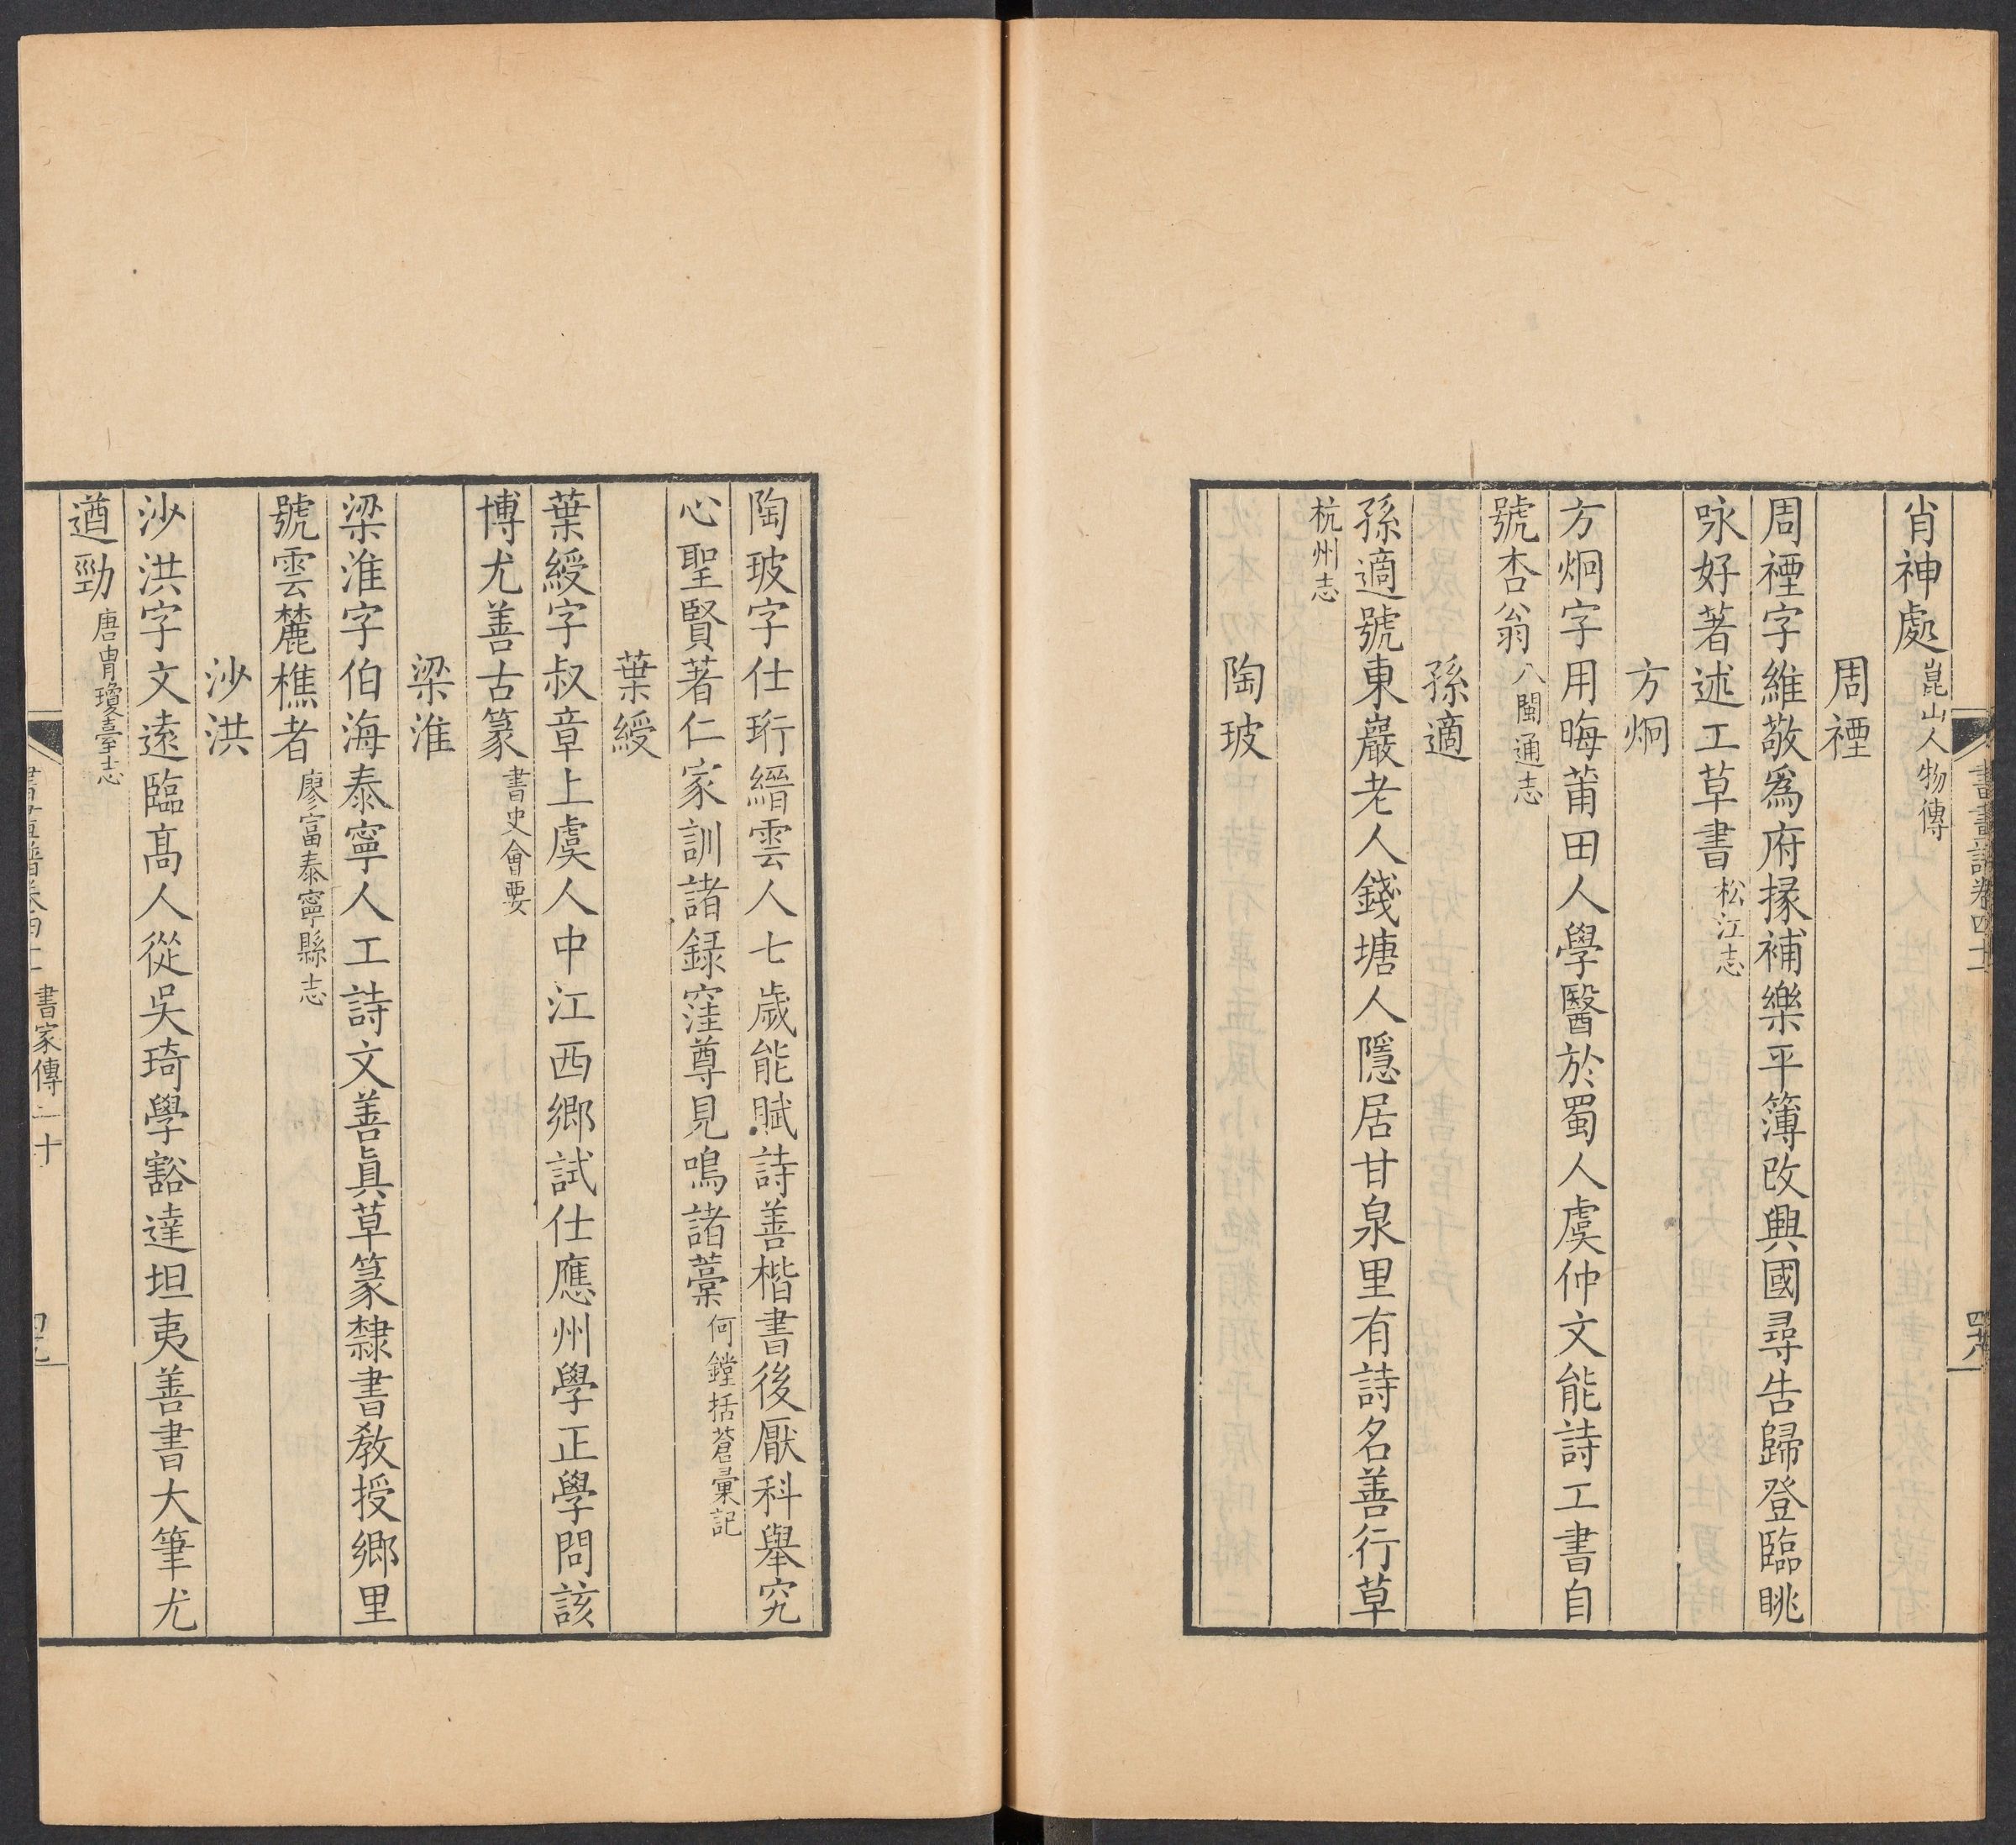 書畫譜卷四十一
四十八
肖神處 崑山人物傳
周禋
周禋字維敬爲府掾補樂平簿改興國尋告歸登臨眺
咏好著述工草書 松江志
方炯
方炯字用晦莆田人學醫於蜀人虞仲文能詩工書自
號杏翁 八閩通志
孫適
孫適號東巖老人錢塘人隱居甘泉里有詩名善行草
杭州志
陶玻
陶玻字仕珩縉雲人七歲能賦詩善楷書後厭科舉究
心聖賢著仁家訓諸録窪尊見鳴諸藁 何鏜括蒼彙記
葉綬
葉綬字叔章上虞人中江西鄉試仕應州學正學問該
博尤善古篆 書史會要
梁淮
梁淮字伯海泰寧人工詩文善眞草篆隸書教授鄉里
號雲麓樵者 廖富泰寧縣志
沙洪
沙洪字文遠臨高人從吳琦學豁達坦夷善書大筆尤
遒勁 唐胄瓊臺志
書家傳二十